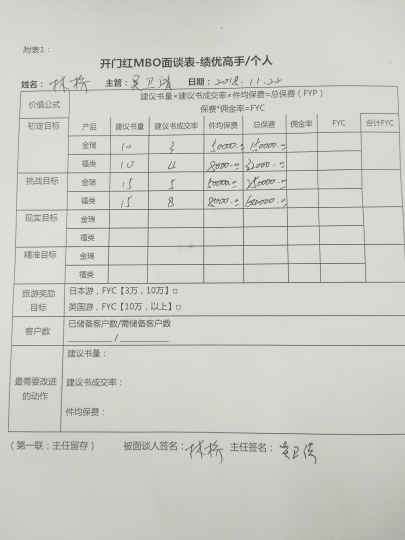 附表1：
开门红MBO面谈表-绩优高手/个人
姓名：林桥 主管：吴卫 日期：2018.11.22
价值公式 建议书量×建议书成交率×件均保费=总保费（FYP）
保费*佣金率=FYC
初定目标 产品 建议书量 建议书成交率 件均保费 总保费 佣金率 FYC 合计FYC
金瑞 10 3 50000.00 150000.00
福类 10 4 8000.00 32000.00
挑战目标 金瑞 15 5 50000.00 250000.00
福类 15 8 8000.00 64000.00
现实目标 金瑞
福类
精准目标 金瑞
福类
旅游奖励目标 日本游，FYC【3万，10万】□
英国游，FYC【10万，以上】□
客户数 已储备客户数/需储备客户数
/
最需要改进的动作 建议书量：
建议书成交率：
件均保费：
（第一联：主任留存） 被面谈人签名：林桥 主任签名：吴卫